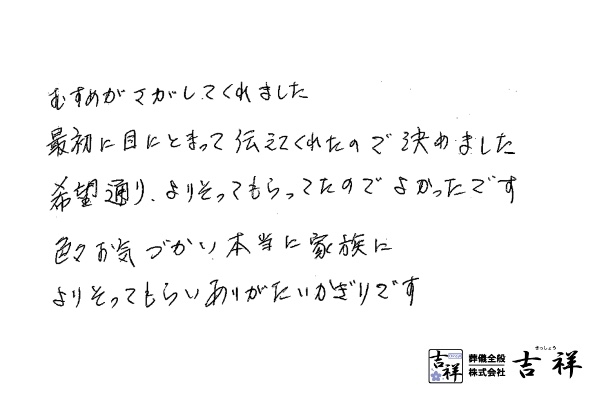 むすめがさがしてくれました
最初に目にとまって伝えてくれたので決めました
希望通り、よりそってもらってたのでよかったです
色々お気づかい本当に家族に
よりそってもらいありがたいかぎりです
吉祥
葬儀全般
株式会社
きっしょう
吉祥